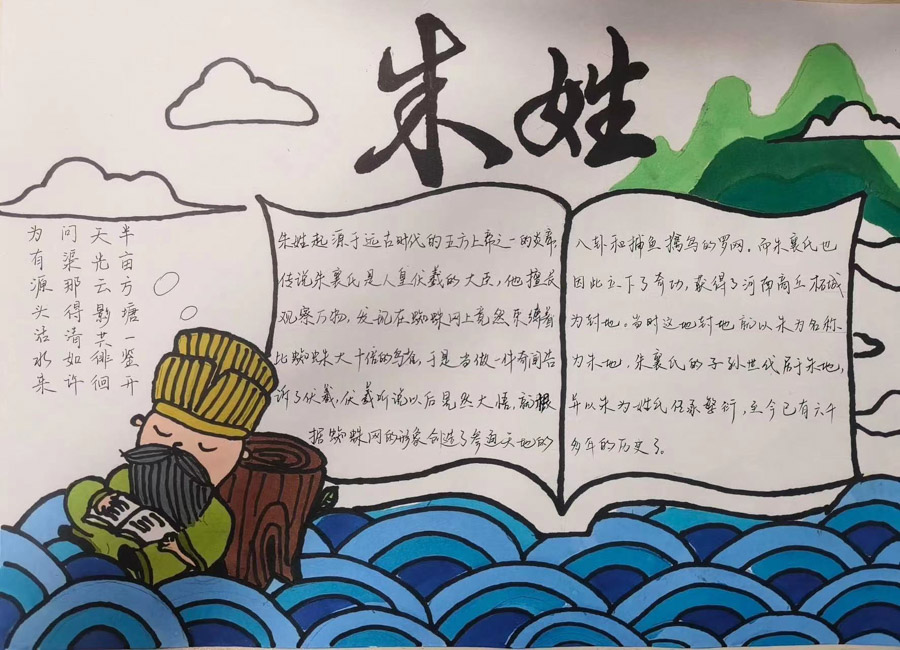 朱姓
半亩方塘一鉴开
天光云影共徘徊
问渠那得清如许
为有源头活水来
朱姓起源于远古时代的五方上帝之一的炎帝
传说朱襄氏是人皇伏羲的大臣，他擅长
观察万物，发现在蜘蛛网上竟然束缚着
比蜘蛛大十倍的鸟雀，于是当做一件奇闻告
诉了伏羲，伏羲听说以后晃然大悟，就根
据蜘蛛网的形象创造了参通天地的
八卦和捕鱼擒鸟的罗网。而朱襄氏也
因此立下了奇功，获得了河南商丘柘城
为封地。当时这地封地就以朱为名称
为朱地，朱襄氏的子孙世代居于朱地，
并以朱为姓氏任承繁衍，至今已有六千
多年的历史了。